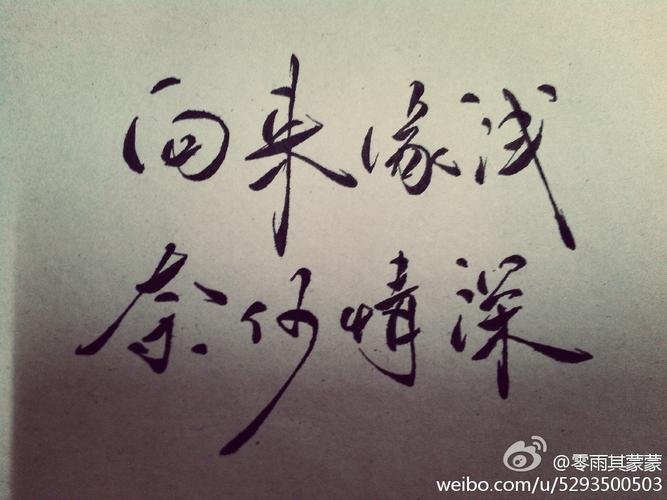 向来缘浅
奈何情深
@零雨其蒙蒙
weibo.com/u/5293500503